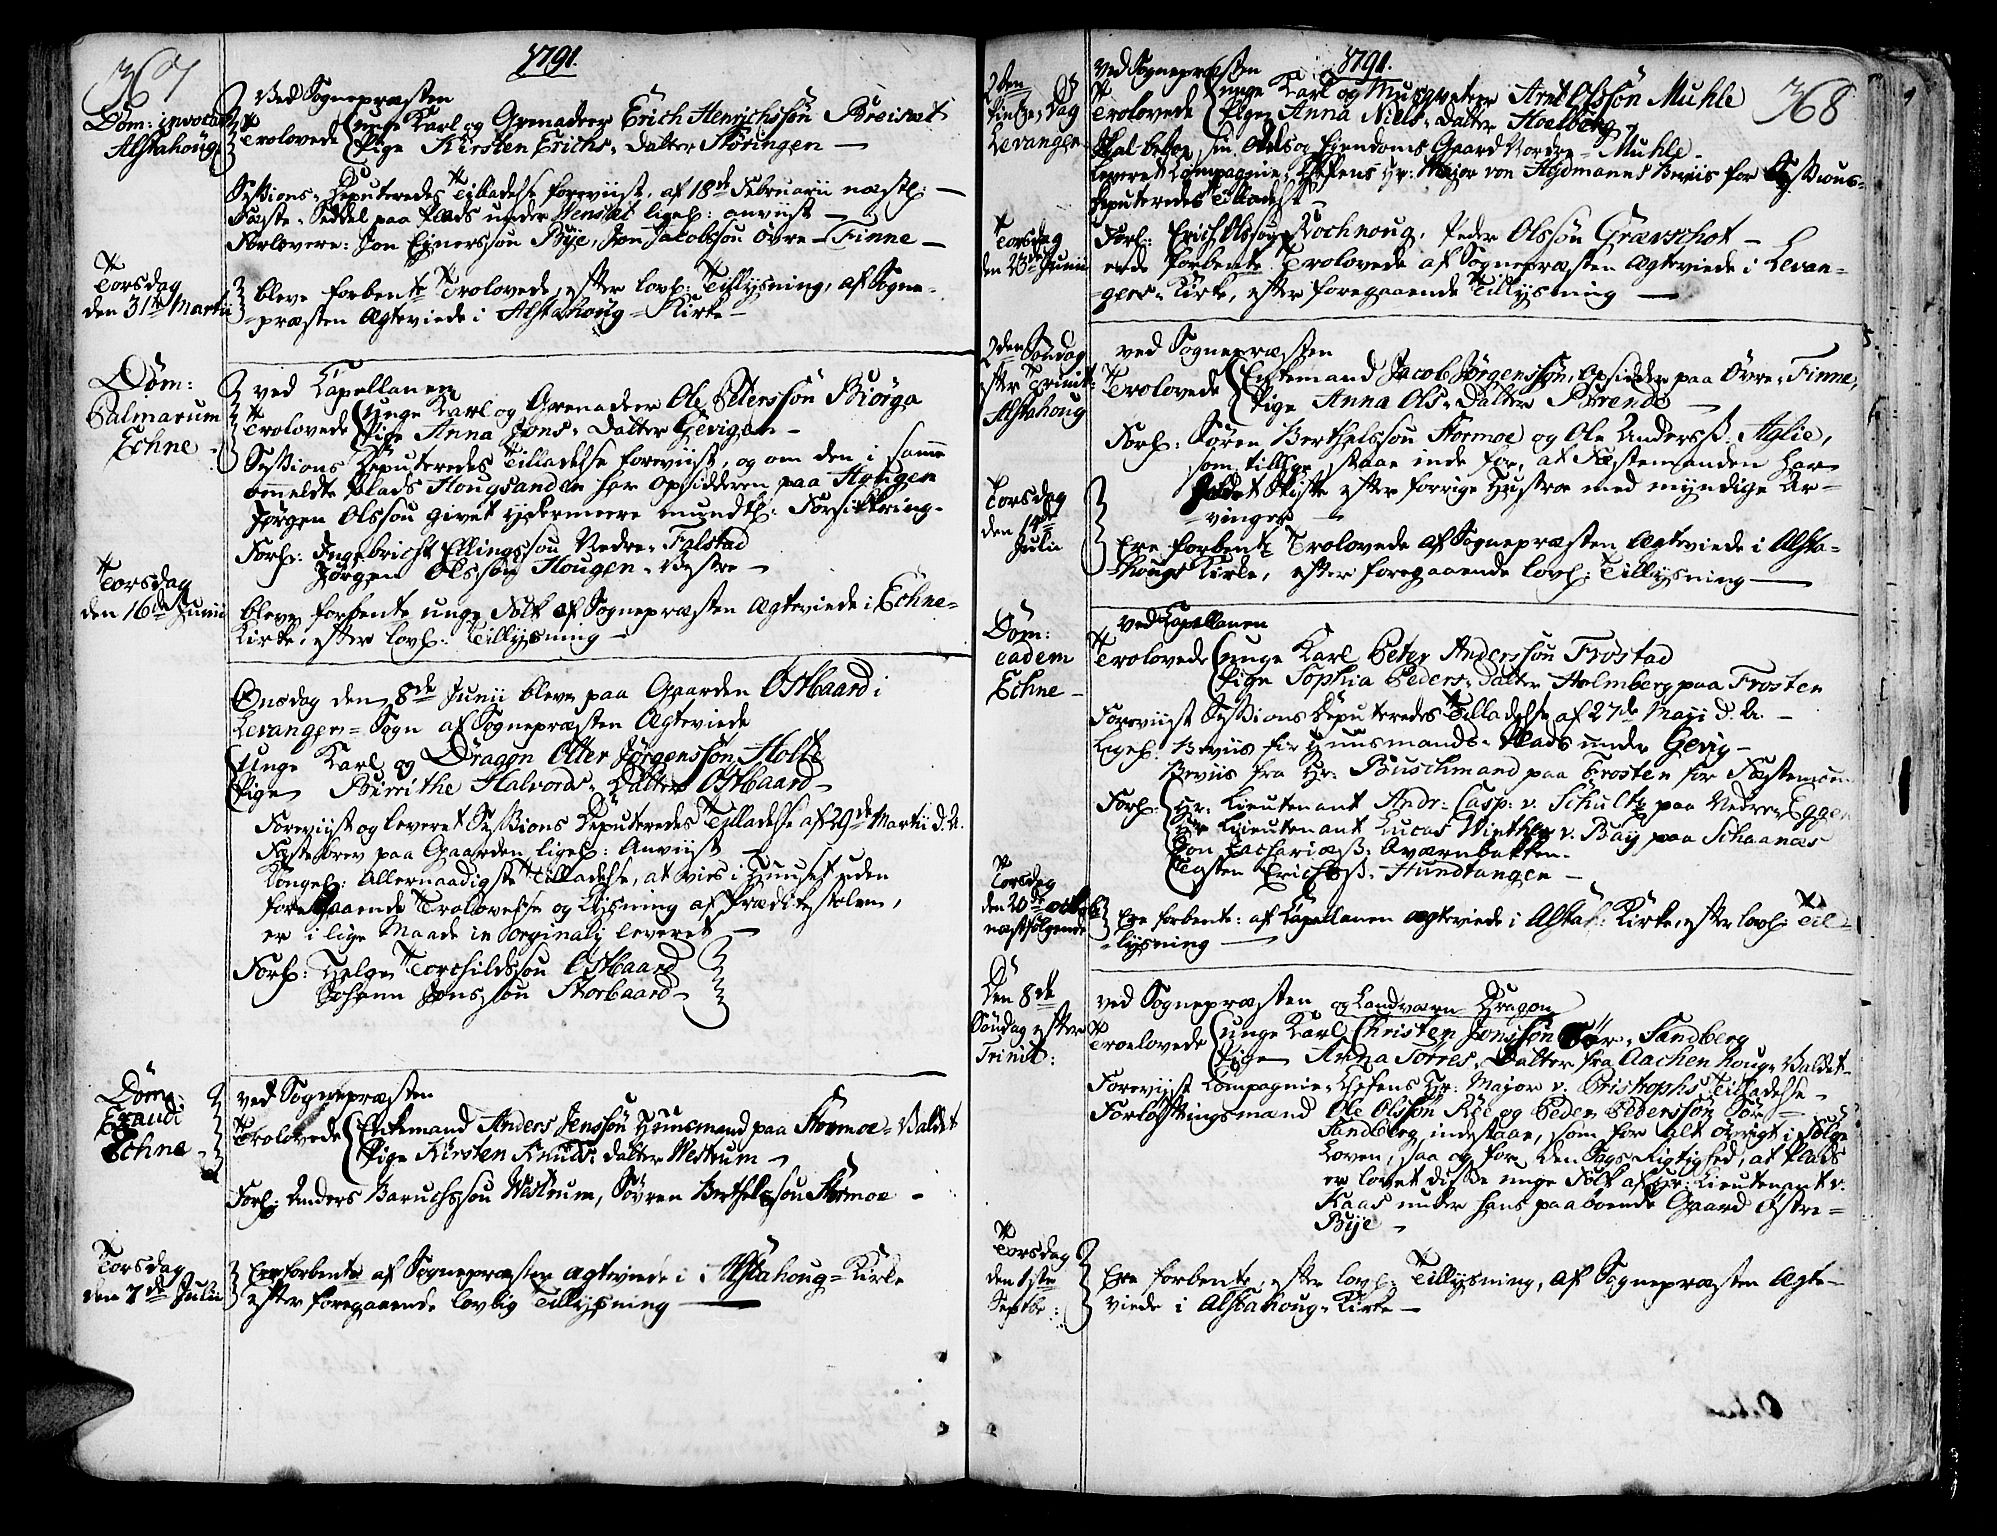 367
1791.
Dom: invocav
Alstahoug
ved Sognepræsten
Trolovede unge Karl og Grenadeer Erich Henrichssøn Breivet
Pige Kirsten Erichs-Datter Støringen
Sessions-Deputeredes Tilladelse foreviist, af 18de Februarii næstl:
Fæste-Seddel paa Plads under Venset ligel: anviist
Forlovere: Jon Ejnerssøn Bye, Jon Jacobssøn Øvre-Finne
Torsdag
den 31te Martii
bleve forbente Trolovede, efter lovl: Tillysning, af Sogne-
præsten Ægteviede i Alstahoug-Kirke
Dom:
Palmarum
Echne
ved Capellanen
Trolovede unge Karl og Grenadeer Ole Petersøn Biørga
Pige Anna Jons-Datter Gevigen
Sessions Deputeredes Tilladelse foreviist, og om den i samme
ommeldte Plads Hougsanden har Opsidderen paa Hougen
Jørgen Olssøn givet ydermeere mundtl: Forsikkring
Forl: Ingebricht Ellingssøn Nedre-Falstad
Jørgen Olssøn Hougen-Vestre
Torsdag
den 16de Junii
bleve forbente unge Folk af Sognepræsten Ægteviede i Echne-
Kirke, efter lovl: Tillysning
Onsdag den 8de Junii bleve paa Gaarden Østbaard i
Levangers-Sogn af Sognepræsten Ægteviede
unge Karl og Dragon Otter Jørgenssøn Holte
Pige Birrithe Halvords-Datter Østbaard
Foreviist og leveret Sessions Deputeredes Tilladelse af 29de Martii d. A.
Fæstebrev paa Gaarden ligel: Anviist
Kongel: Allernaadigste Tilladelse, at vies i Huuset uden
foregaaende Trolovelse og Lysning af Prædikestolen,
er i lige Maade in orginali leveret
Forl: Helge Torchildssøn Østbaard
Johann Jonssøn Norbaard
Dom:
Exaudi
Echne
ved Sognepræsten
Trolovede Enkemand Anders Jenssøn Huusmand paa Stormoe-Valdet
Pige Kirsten Knuds-Datter Westrum
Forl: Anders Baruchssøn Westrum, Søvren Berthelssøn Stormoe
Torsdag
den 7de Julii
Ere forbente af Sognepræsten Ægteviede i Alstahoug-Kirke
efter foregaaende lovlig Tillysning
1791.
368
2den
Pintze-Dag
Levanger
ved Sognepræsten
Trolovede unge Karl og Musqueteer Arnt Olssøn Muhle
Pigen Anna Niels-Datter Hoelberg,
Skal beboe sin Odels og Ejendoms Gaard Nordre-Muhle
leveret Compagnie-Chefens Hr: Major von Heydmanns Beviis for Sessions-
Deputeredes Tilladelse
Forl: Erich Olssøn Rochnoug, Peder Olssøn Grævschot
Torsdag
den 23de Junii
ere forbente Trolovede af Sognepræsten Ægteviede i Levan-
gers-Kirke, efter foregaaende Tillysning
2den Søndag
efter Trinit:
Alstahoug
ved Sognepræsten
Trolovede Enkemand Jacob Jørgenssøn, Opsidder paa Øvre-Finne,
Pige Anna Ols-Datter Brende
Forl: Søren Berthelssøn Stormoe og Ole Anderss. Aglie,
som tillige staae inde for, at Fæstemanden har
holdet Skifte efter forrige Hustroe med myndige Ar-
vinger
Torsdag
den 14de
Julii
Ere forbente Trolovede af Sognepræsten Ægteviede i Alsta-
hougs Kirke, efter foregaaende lovl: Tillysning
Dom:
eadem
Echne
ved Capellanen
Trolovede unge Karl Peter Anderssøn Frostad
Pige Sophia Peders-Datter Holmberg paa Frosten
Foreviist Sessions Deputeredes Tilladelse af 27de Maji d. A.
Ligel: Beviis for Huusmands-Plads under Gevig
Beviis fra Hr: Buschmand paa Frosten for Fæstemøen
Forl: Hr: Lieutenant Andr: Casp: v. Schultz paa Nedre-Eggen
Hr Lieutenant Lucas Winther v. Bay paa Schaanes
Jon Zachariæss: Qværnbakken
Tosten Erichss: Hundtangen
Torsdag
den 20de Octob:
næstfølgende
Ere forbente: af Capellanen Ægteviede i Alstah: Kirke, efter lovl: Til-
lysning
Den 8de
Søndag efter
Trinit:
ved Sognepræsten og Landværn Dragon
Troelovede unge Karl Christen Jonssøn Sør-Sandberg
Pige Anna Torres-Datter fra Aachenhoug-Valdet
Foreviist Compagnie-Chefens Hr: Major v. Bristophs Tilladelse
Forløftningsmænd Ole Olssøn Rée og Peder Pederssøn Sør-
Sandberg, indestaae, som for alt øvrigt i Følge
Loven, saa og for den Sags Rigtighed, at Plads
er lovet disse unge Folk af Hr: Lieutenant v.
Kaas under hans paaboende Gaard Østre-
Bye
Torsdag
den 1ste
Septbr:
Ere forbente, efter lovl: Tillysning, af Sognepræsten Ægte-
viede i Alstahoug-Kirke